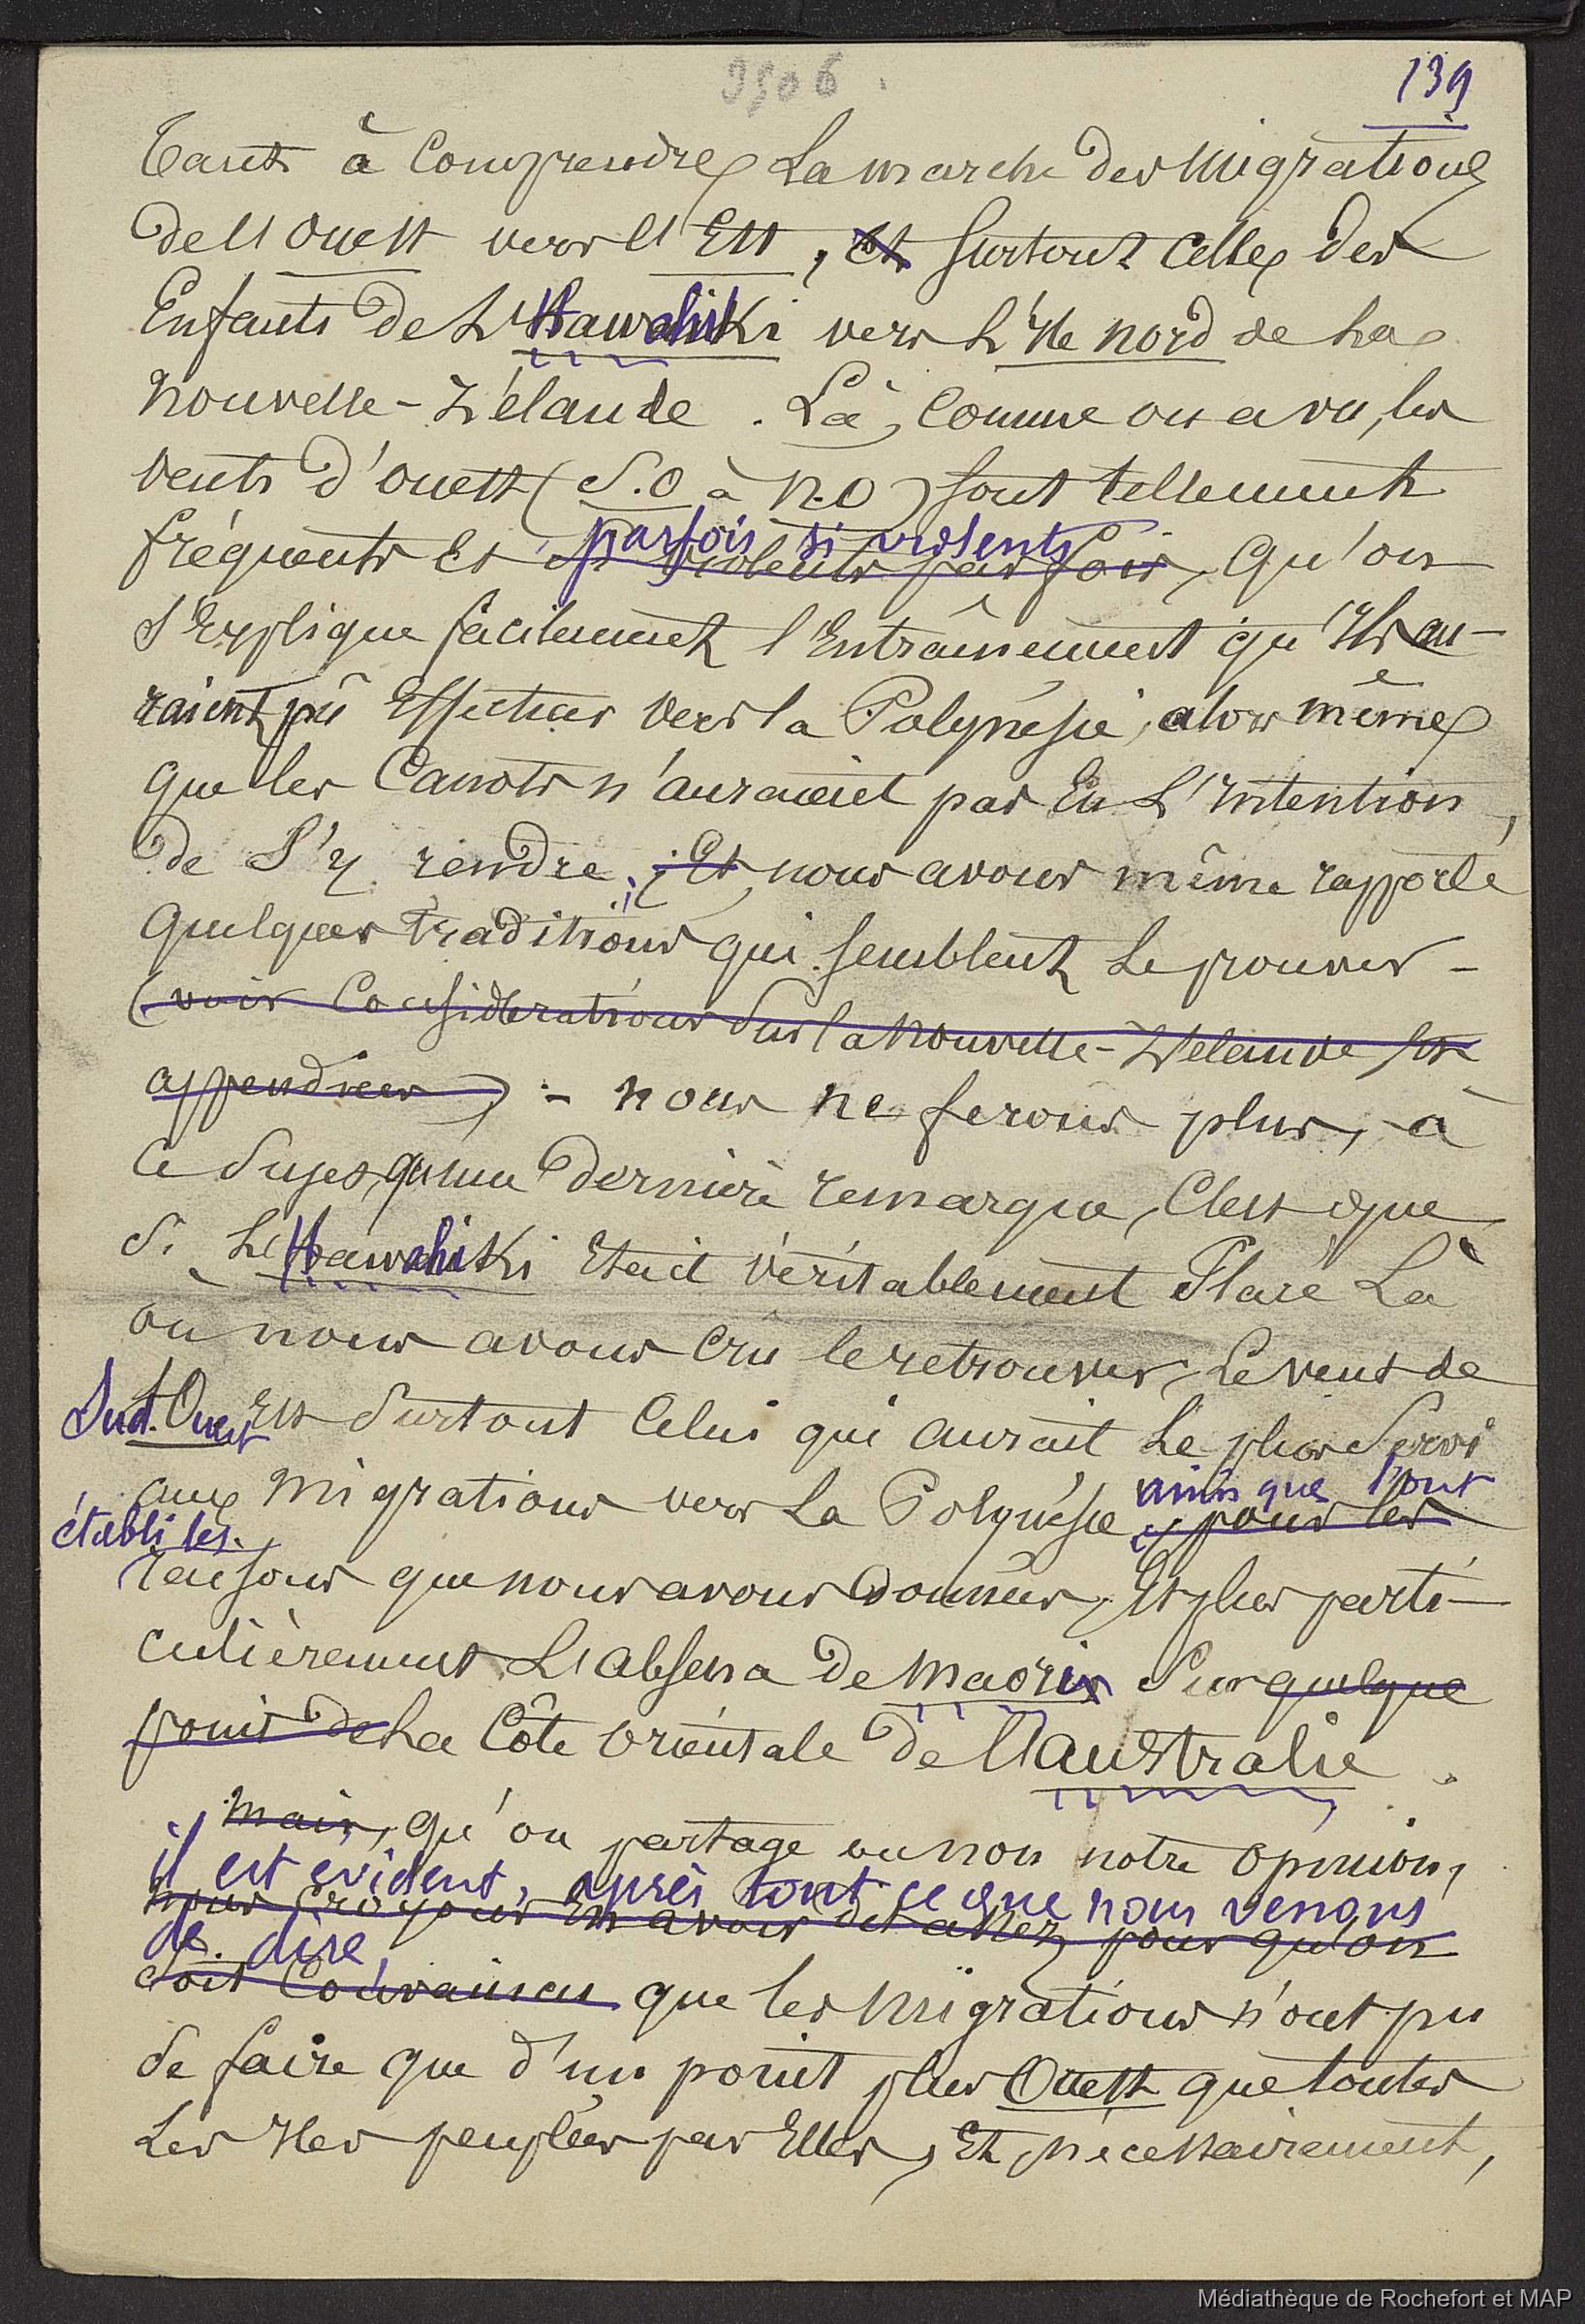 3506.
139
tant à comprendre la marche des migrations
de l'ouest vers l'Est, et surtout celle des
Enfants de l'Hawahiki vers l'île nord de la
Nouvelle-Zélande. Là, comme on a vu, les
vents d'ouest (S.O à N.O) sont tellement
parfois si violents
fréquents et si violents parfois, qu'on
s'explique facilement l'Entraînement qu'ils au-
raient pû Effectuer vers la Polynésie, alors même
que les Canots n'auraient pas Eu l'intention
de s'y rendre; Et nous avons même rapporté
quelques traditions qui semblent le prouver -
(voir Considérations sur la Nouvelle-Zélande et
appendices) - nous ne ferons plus, à
ce sujet, qu'une dernière remarque, C'est que
si l'Hawahiki Etait véritablement Placé Là
ou nous avons crû le retrouver, le vent de
Sud.Ouest Est surtout Celui qui aurait le plus Servi
ainsi que l'ont
aux migrations vers la Polynésie, pour les
établi les
raisons que nous avons données, Et plus parti-
culièrement L'absence de Maoris sur quelque
point de la Côte orientale de l'Australie.
Mais, qu'on partage ou non notre opinion,
il est évident, après tout ce que nous venons
nous croyons En avoir dit assez pour qu'on
de dire,
soit convaincu que les migrations n'ont pu
se faire que d'un point plus Ouest que toutes
les Iles peuplées par Elles, Et, nécessairement,
Médiathèque de Rochefort et MAP